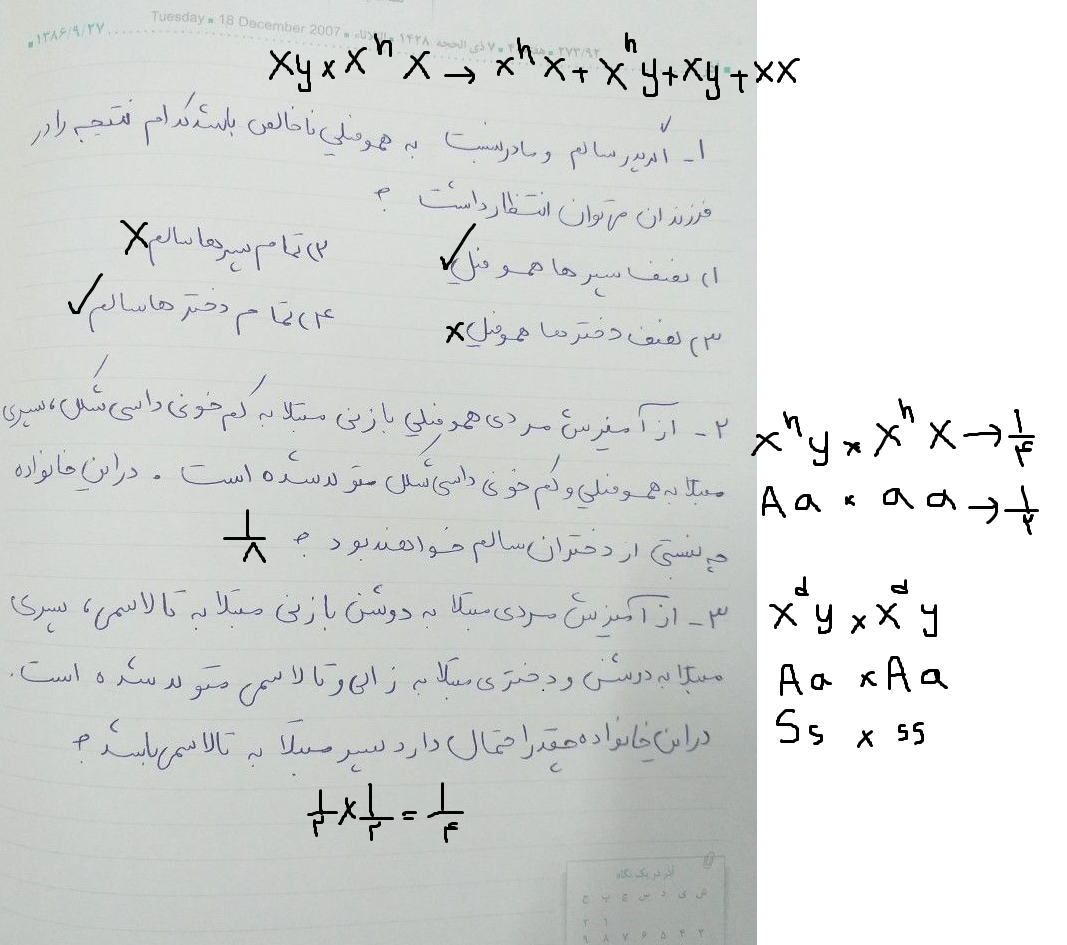 Tuesday ▪ 18 December 2007 ▪ الثلاثاء ▪ ۷ ذی الحجه ۱۴۲۸ ▪ ۲۷۳/۹۲
▪ ۱۳۸۶/۹/۲۷
Xy x Xʰ X → xʰ X + Xʰ y + Xy + XX
۱- اگر پدر سالم و مادر نسبت به هموفیلی ناخالص باشد کدام نتیجه را در
فرزندان می توان انتظار داشت ؟
۱) نصف پسرها هموفیلی ✓ ۲) تمام پسرها سالم X
۳) نصف دخترها هموفیلی x ۴) تمام دخترها سالم ✓
۲- از آمیزش مردی هموفیلی با زنی مبتلا به کم خونی داسی شکل، پسری
مبتلا به هموفیلی و کم خونی داسی شکل متولد شده است . در این خانواده
چه نسبتی از دختران سالم خواهند بود ؟ ۱/۸
xʰ y x Xʰ X → ۱/۴
Aa x aa → ۱/۲
۳- از آمیزش مردی مبتلا به دوشن با زنی مبتلا به تالاسمی، پسری
مبتلا به دوشن و دختری مبتلا به زالی و تالاسمی متولد شده است.
در این خانواده چقدر احتمال دارد پسر مبتلا به تالاسمی باشد ؟
۱/۲ x ۱/۲ = ۱/۴
Xᵈ y x Xᵈ y
Aa x Aa
Ss x ss
آذر در یک نگاه
ش ی د س چ پ ج
۱ ۲
۳ ۴ ۵ ۶ ۷ ۸ ۹